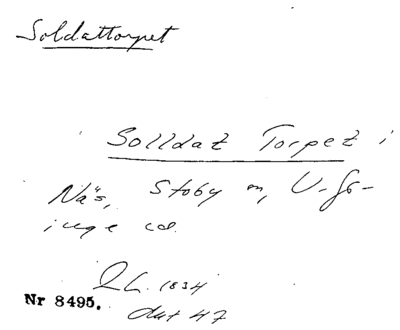 Soldattorpet
Solldat Torpet i
Näs, Stoby sn, V. Gö-
inge hd.
RL. 1834
dat 47
Nr 8495.